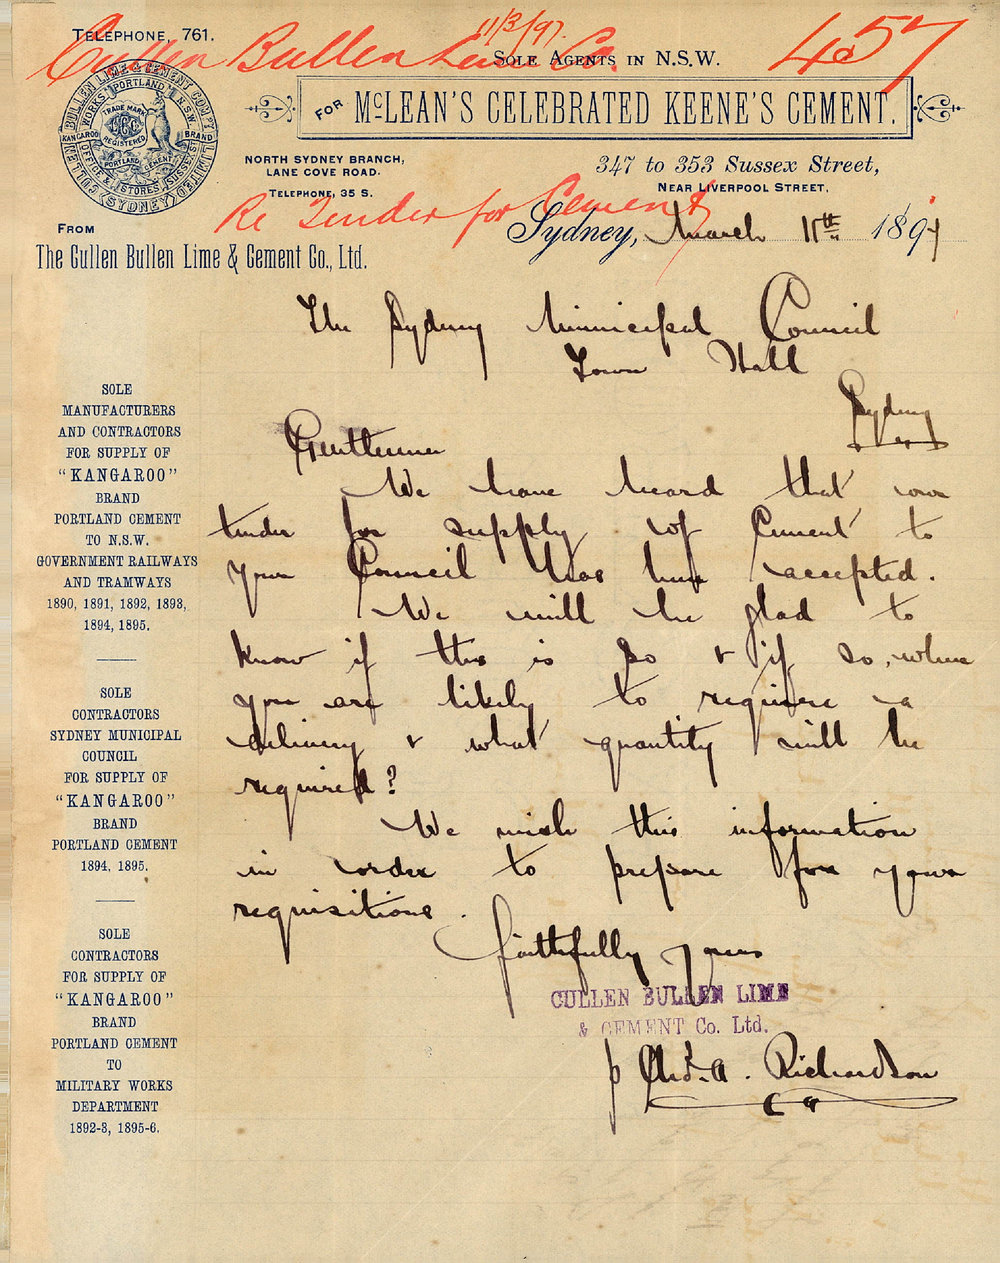 11/3/97.
Cullen Bullen Lime Co. 457
TELEPHONE, 761.
SOLE AGENTS IN N.S.W.
FOR McLEAN'S CELEBRATED KEENE'S CEMENT.
CULLEN BULLEN LIME & CEMENT COMPY LIMITED
WORKS PORTLAND N.S.W.
TRADE MARK
REGISTERED
KANGAROO BRAND
PORTLAND CEMENT
OFFICE & STORES SUSSEX ST
SYDNEY
NORTH SYDNEY BRANCH,
LANE COVE ROAD.
TELEPHONE, 35 S.
347 to 353 Sussex Street,
NEAR LIVERPOOL STREET.
Re Tender for Cement
FROM
The Cullen Bullen Lime & Cement Co., Ltd.
Sydney, March 11th 1897
The Sydney Municipal Council
Town Hall
Sydney
Gentlemen
We have heard that our
tender for supply of Cement to
your Council has been accepted.
We will be glad to
know if this is so & if so, when
you are likely to require a
delivery & what quantity will be
required?
We wish this information
in order to prepare for your
requisitions.
Faithfully yours
CULLEN BULLEN LIME
& CEMENT Co. Ltd.
p Chas. A. Richardson
SOLE
MANUFACTURERS
AND CONTRACTORS
FOR SUPPLY OF
"KANGAROO"
BRAND
PORTLAND CEMENT
TO N.S.W.
GOVERNMENT RAILWAYS
AND TRAMWAYS
1890, 1891, 1892, 1893,
1894, 1895.
SOLE
CONTRACTORS
SYDNEY MUNICIPAL
COUNCIL
FOR SUPPLY OF
"KANGAROO"
BRAND
PORTLAND CEMENT
1894, 1895.
SOLE
CONTRACTORS
FOR SUPPLY OF
"KANGAROO"
BRAND
PORTLAND CEMENT
TO
MILITARY WORKS
DEPARTMENT
1892-3, 1895-6.